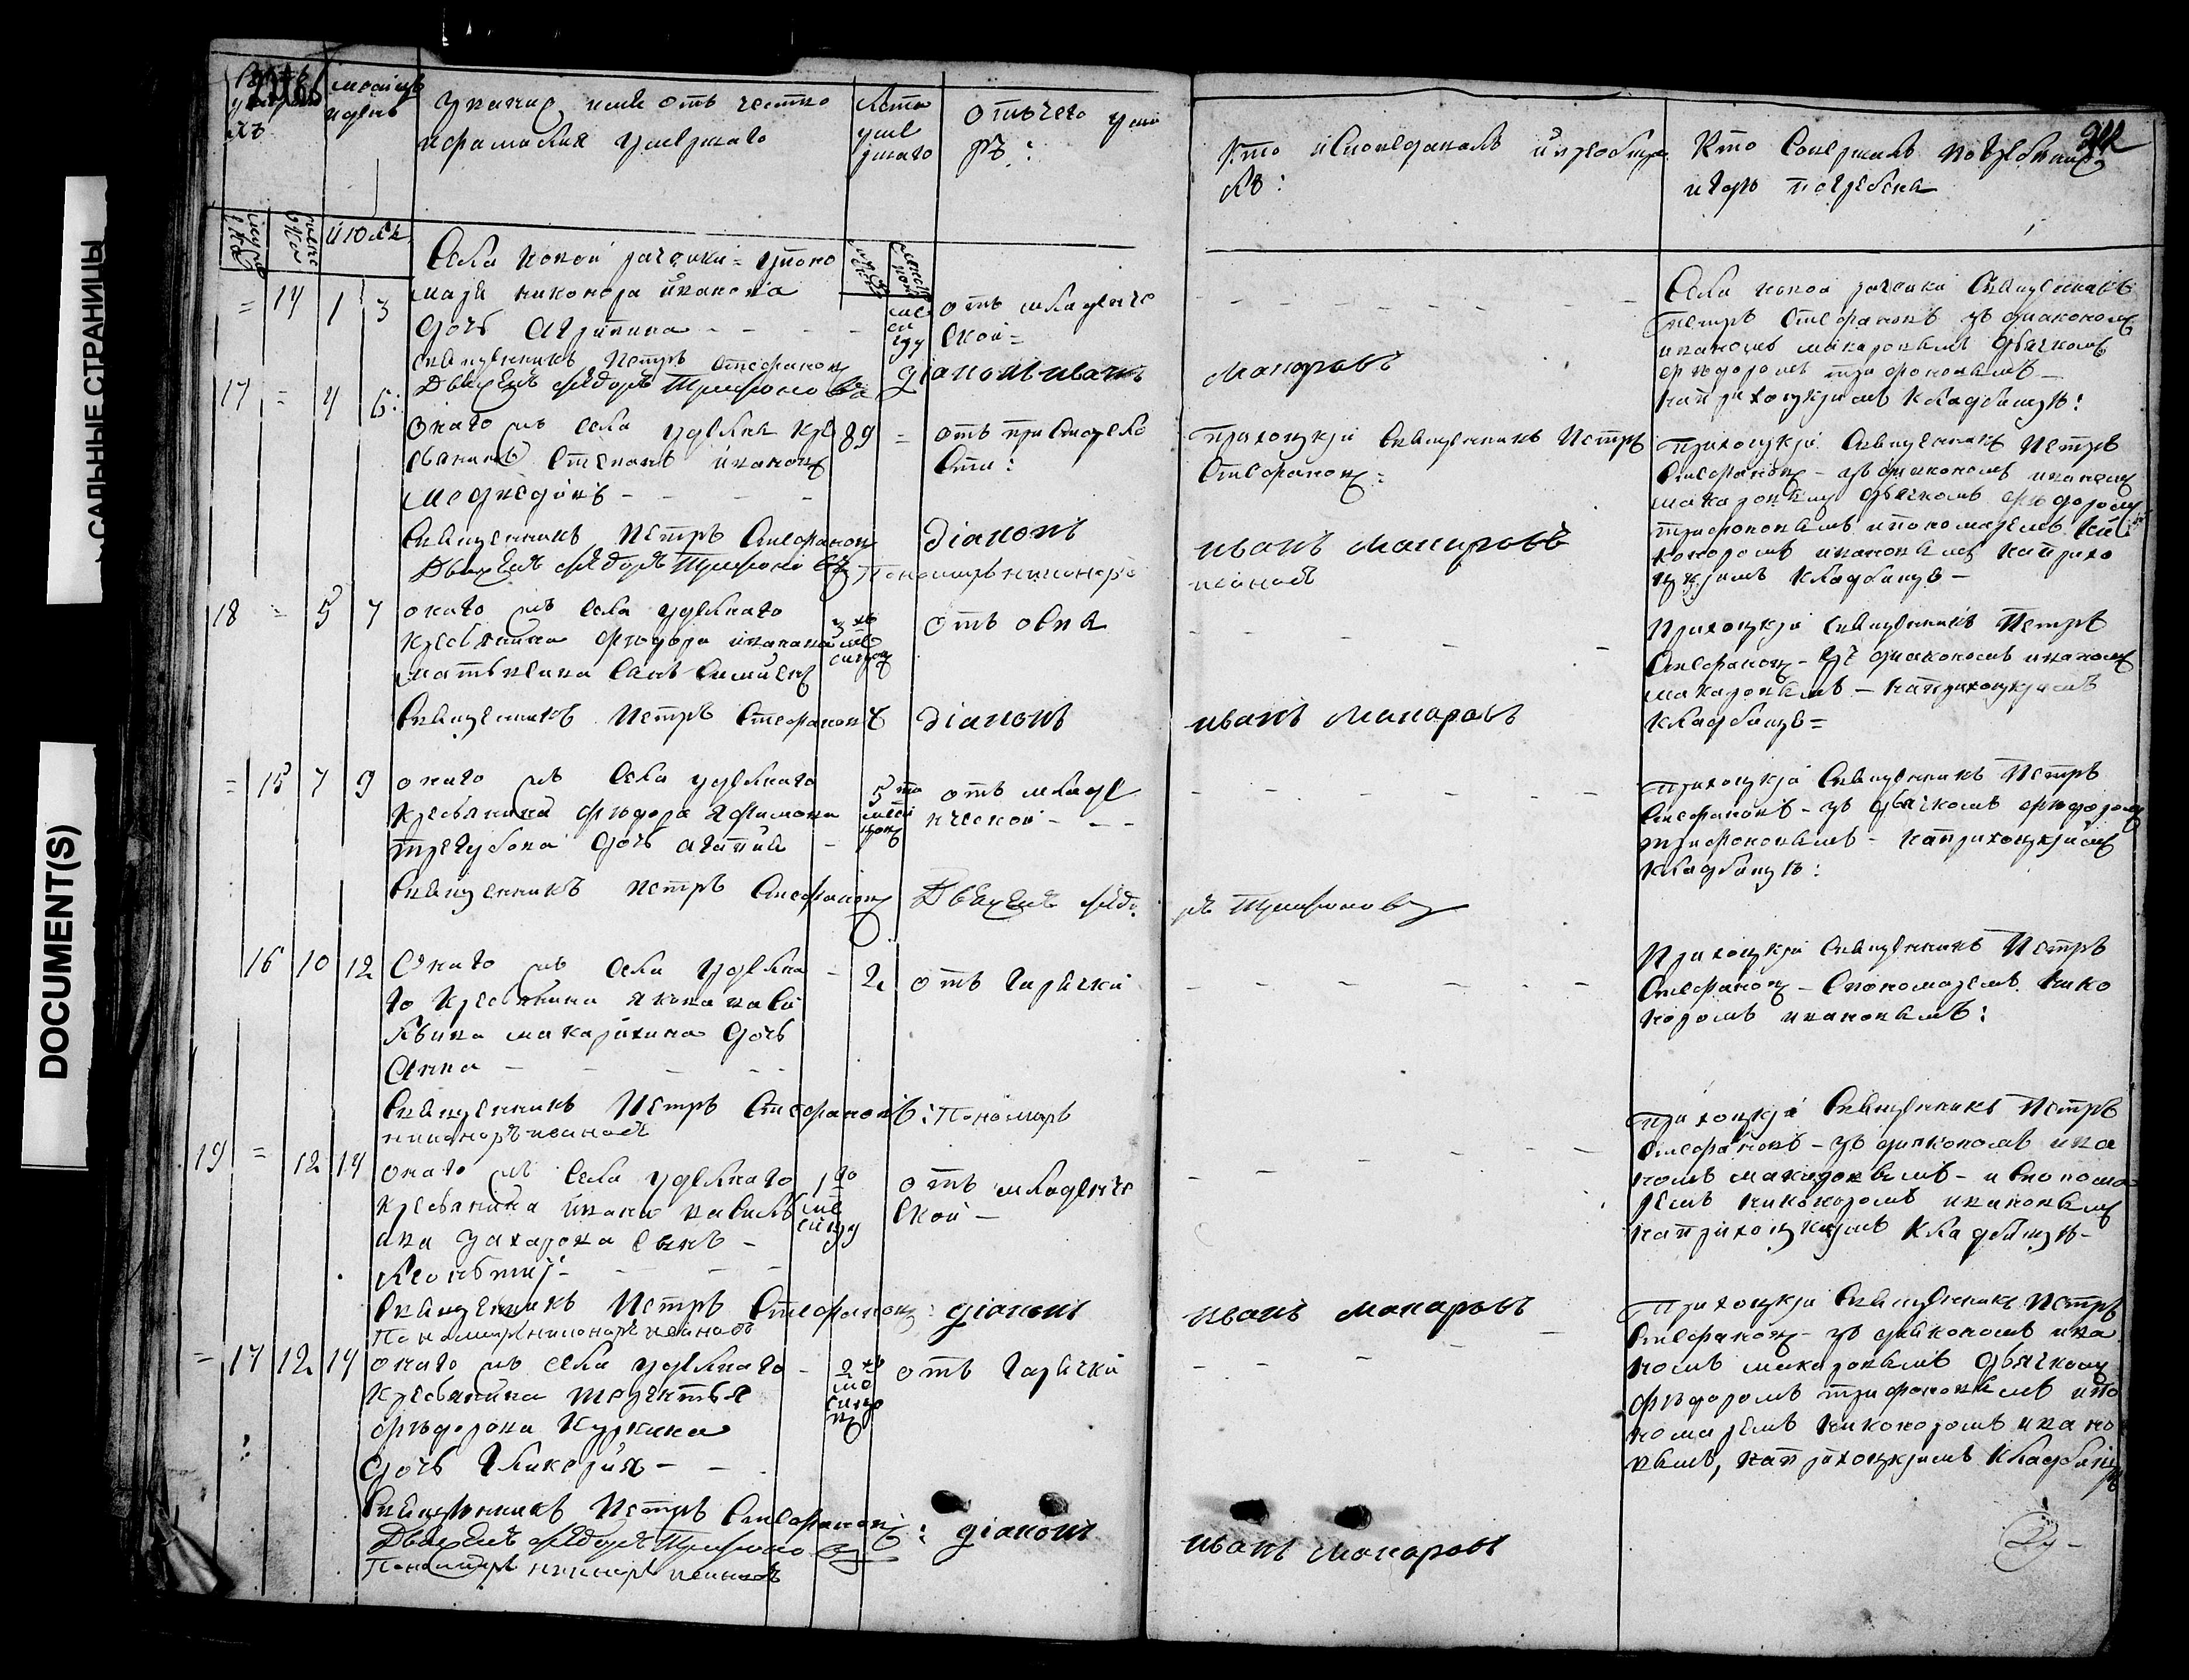 САЛЬНЫЕ СТРАНИЦЫ
DOCUMENT(S)
месяцъ
и день
Звание, имя отъ чество
и фамилия умершаго
Лета
умершаго
Отъ чего уме
ръ:
Кто исповедовалъ и приобща
лъ:
Кто Совершалъ погребение
и где погребены
июль
Села новой рачейки= Поно
маря никонора иванова
= 14 1 3
дочь Агрипина - - - -
отъ младенче
ской=
- - - - -
Села новой рачейки Священникъ
Петръ Стефановъ зъ диакономъ
иваномъ макаровымъ дьячкомъ
фъодоромъ трифоновымъ
на приходскимъ кладбищъ:
Священникъ Петръ Стефановъ
Дьячекъ Федоръ Трифоновъ
діаконъ иванъ
Макаровъ
17 = 4 6:
онаго жъ села удельны кре
стьянинъ Степанъ ивановъ
Медведевъ - - - -
89 =
отъ при старело
сти:
приходский Священникъ Петръ
Стефановъ:
приходский Священникъ Петръ
Стефановъ - зъ диакономъ иваномъ
макаровымъ дьячкомъ фъодоромъ
трифоновымъ и пономаремъ ни
конором ивановымъ на прихо
дскимъ кладбище -
Священникъ Петръ Стефановъ
діаконъ
иванъ Макаровъ
Дьячекъ Федоръ Трифоновъ
Пономарь никоноръ
ивановъ
18 = 5 7
онаго жъ села удельнаго
крестьянина фъодора иванова
Матвеева сынъ
3 хъ
месицовъ
отъ оспы
- - - -
Приходский священникъ Петръ
Стефановъ - зъ диакономъ иваномъ
макаровымъ - на приходскимъ
кладбище=
Священникъ Петръ Стефановъ
діаконъ
иванъ Макаровъ
= 15 7 9
онаго жъ села удельнаго
крестьянина фъодора Яфимова
трегубова дочь агапия -
5 ти
месицовъ
отъ младе
нческой - - -
- - - - -
Приходский Священникъ Петръ
Стефановъ - зъ дьячкомъ фъодоромъ
трифоновымъ - на приходскимъ
кладбищъ:
Священникъ Петръ Стефановъ
Дьячекъ Федо
ръ Трифоновъ
16 10 12
Онаго жъ села удельна
го крестьянина якова васи
льива макарихина дочь
Анна - - - -
2
отъ гарячки
- - - - -
Приходский Священникъ Петръ
Стефановъ - с пономаремъ нико
норомъ ивановымъ:
Священникъ Петръ Стефановъ: Пономарь
никоноръ ивановъ
19 = 12 14
онаго жъ села удельнаго
крестьянина ивана василь
ива захарова сынъ -
Леонътий - - -
1 го
месицу
отъ младенче
ской -
- - - - -
приходский Священникъ Петръ
Стефановъ - зъ диакономъ ива
номъ макаровымъ - и с понома
ремъ никонором ивановымъ
на приходскимъ кладбищъ -
Священникъ Петръ Стефановъ: діаконъ
иванъ Макаровъ
Пономарь никоноръ ивановъ
= 17 12 14
онаго жъ села удельнаго -
крестьянина терентья
фъодорова Куркина
дочь Гликерия - -
2 хъ
месицовъ
отъ гарячки
- - - -
Приходский Священникъ Петръ
Стефановъ - зъ диакономъ ива
номъ макаровымъ дьячкомъ
фъодоромъ трифоновымъ и по
номаремъ никоноромъ ивано
вымъ, на приходскимъ кладбищъ
Священникъ Петръ Стефановъ: діаконъ
иванъ Макаровъ
Дьячекъ Федоръ Трифоновъ
Пономарь никоноръ ивановъ